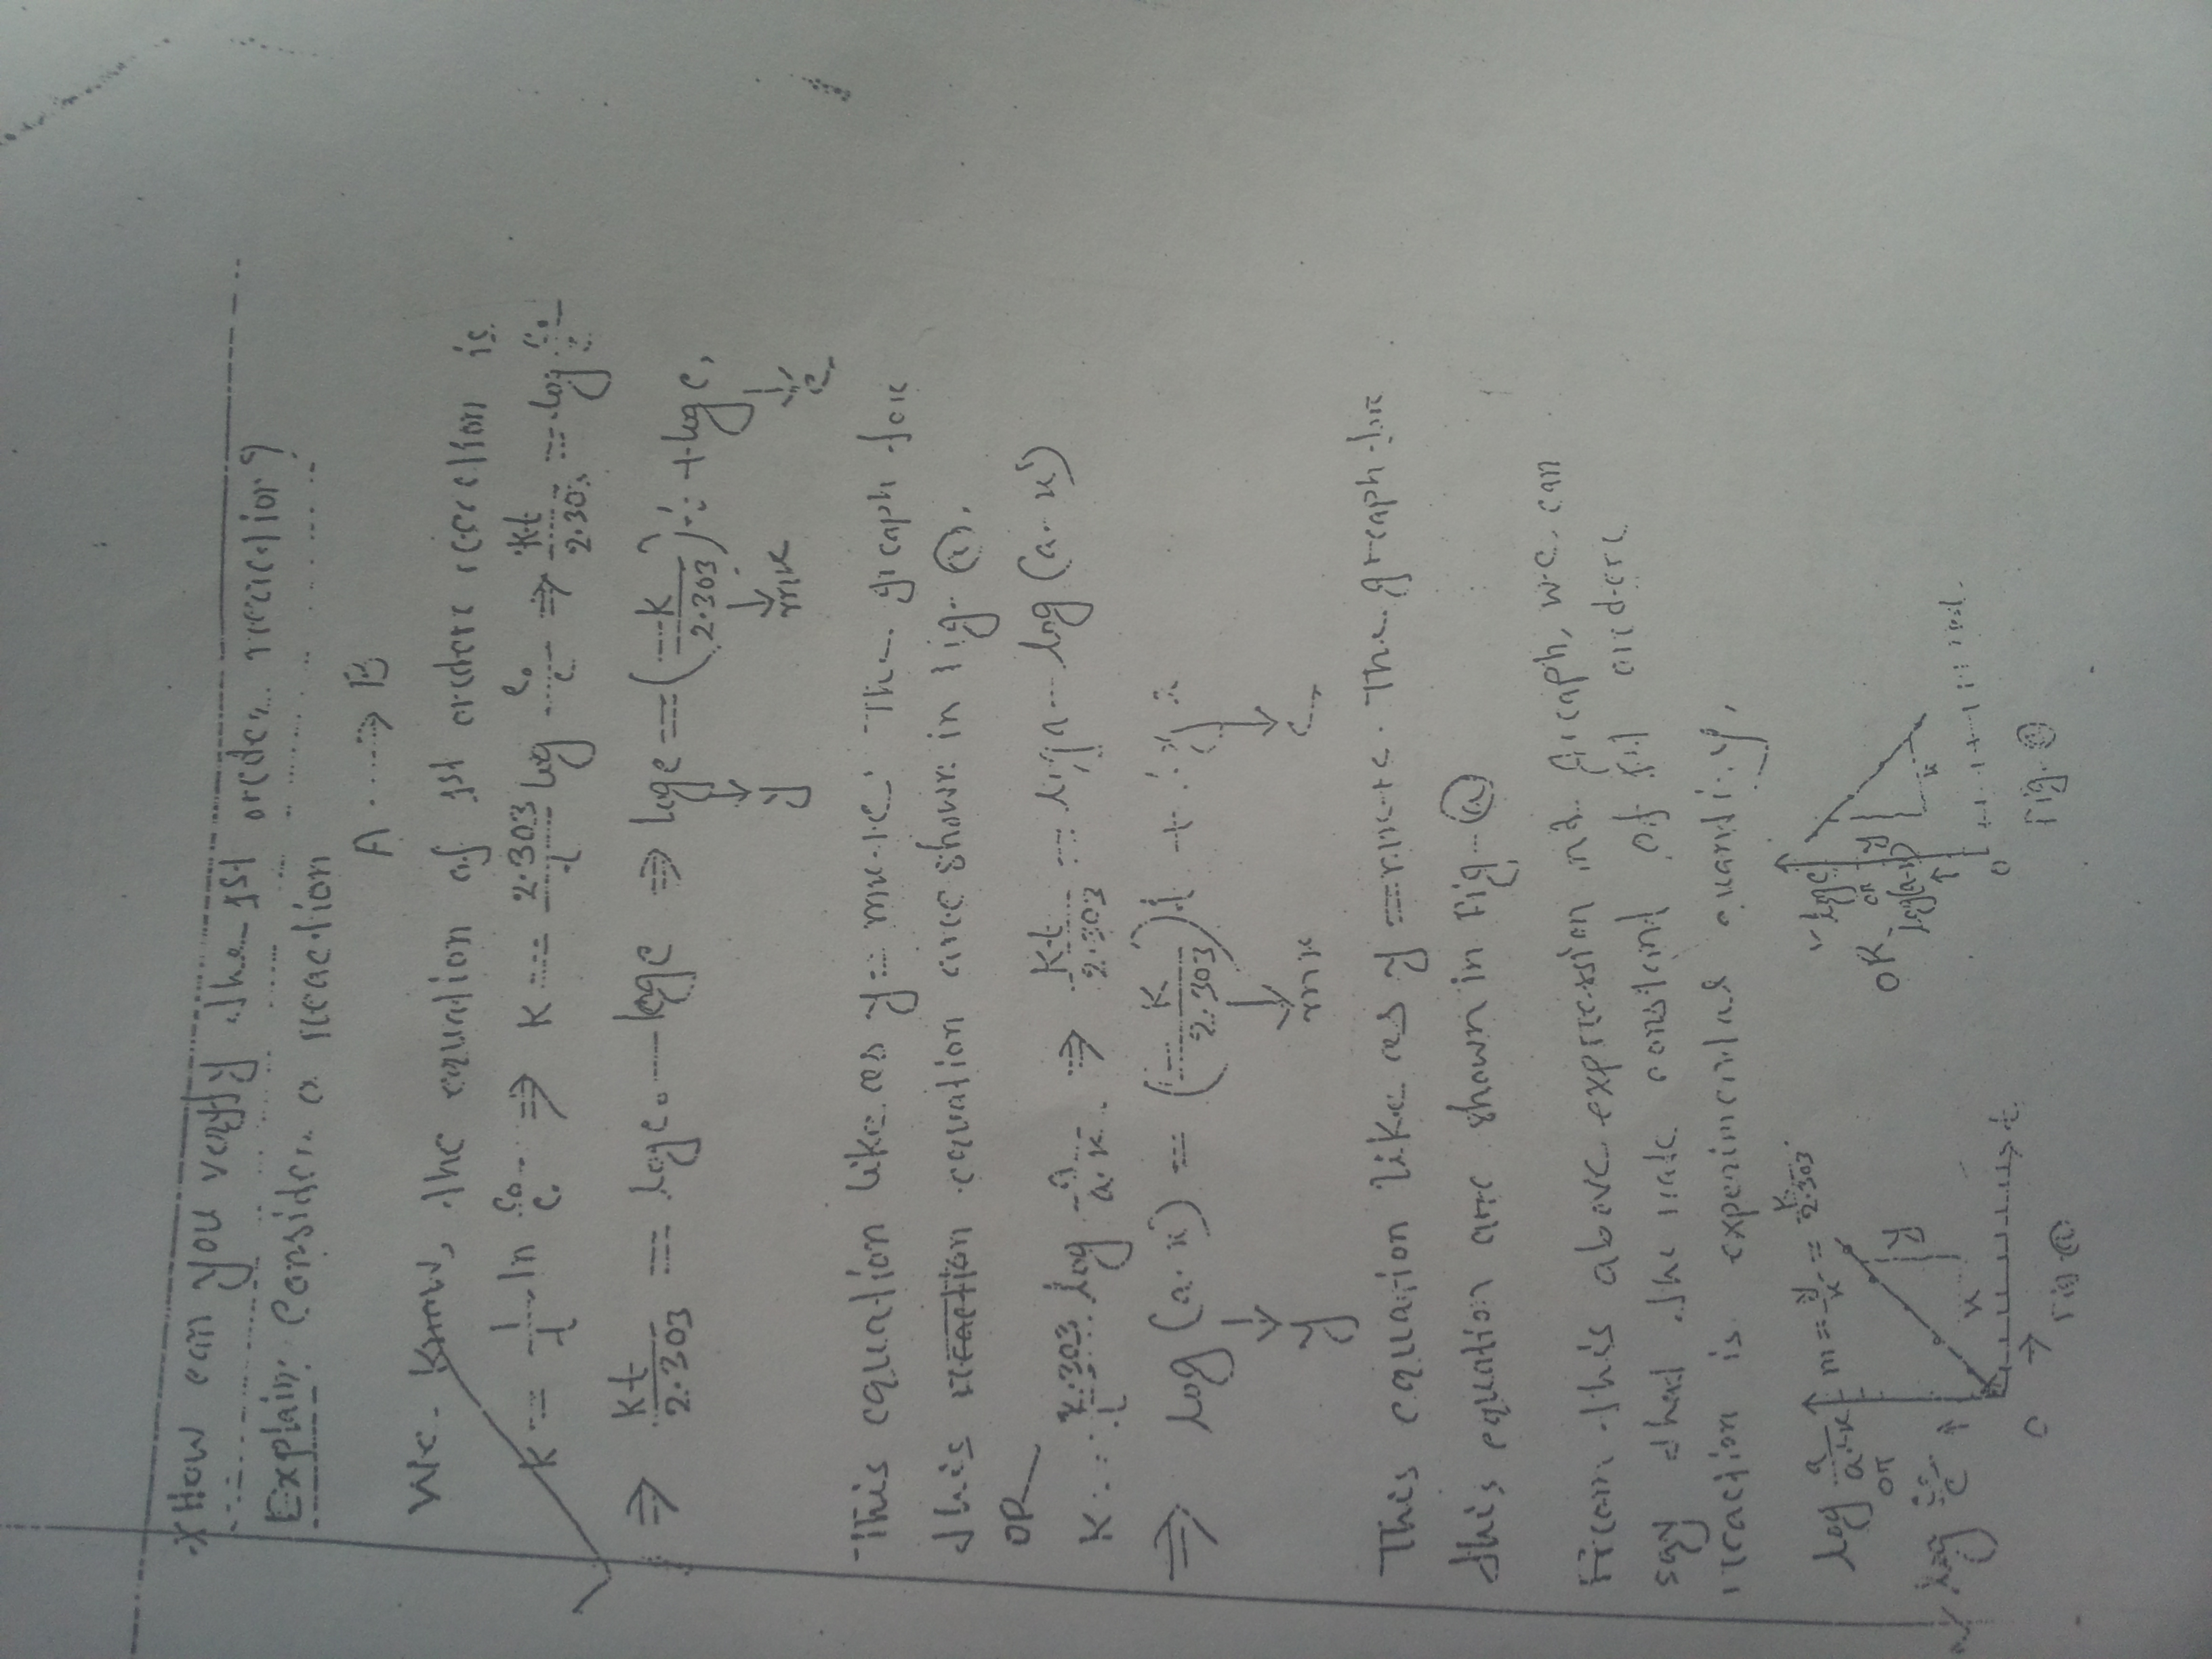 * How can you veryfy the 1st order reaction?
Explain: Consider a reaction
A → B
We Know, the equation of 1st order reaction is
K = 1/t ln C₀/C ⇒ K = 2.303/t log C₀/C ⇒ Kt/2.303 = log C₀/C
⇒ Kt/2.303 = log C₀ - log C ⇒ log C = (-K/2.303)t + log C₀
↓ y ↓ mx ↓ c
This equation like as y = mx+c. The graph for
this equation are shown in fig-
OR
K = 2.303/t log a/a-x ⇒ Kt/2.303 = log a - log (a-x)
⇒ log (a-x) = (-K/2.303)t +
↓ y ↓ mx ↓ c
This equation like as y = mx+c. The graph for
this equation are shown in Fig- (a)
From this above expression and graph, we can
say that the rate constant of 1st order
reaction is experimental quantity.
log a/a-x m = y/x = K/2.303
or
log C₀/C ↑
y x
O → t
Fig (a)
log C
or
OR log(a-x) ↑
y x
O
Fig.